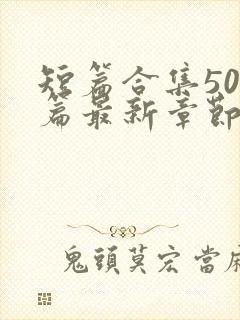 短篇合集50
篇最新章節
鬼頭莫宏當麻